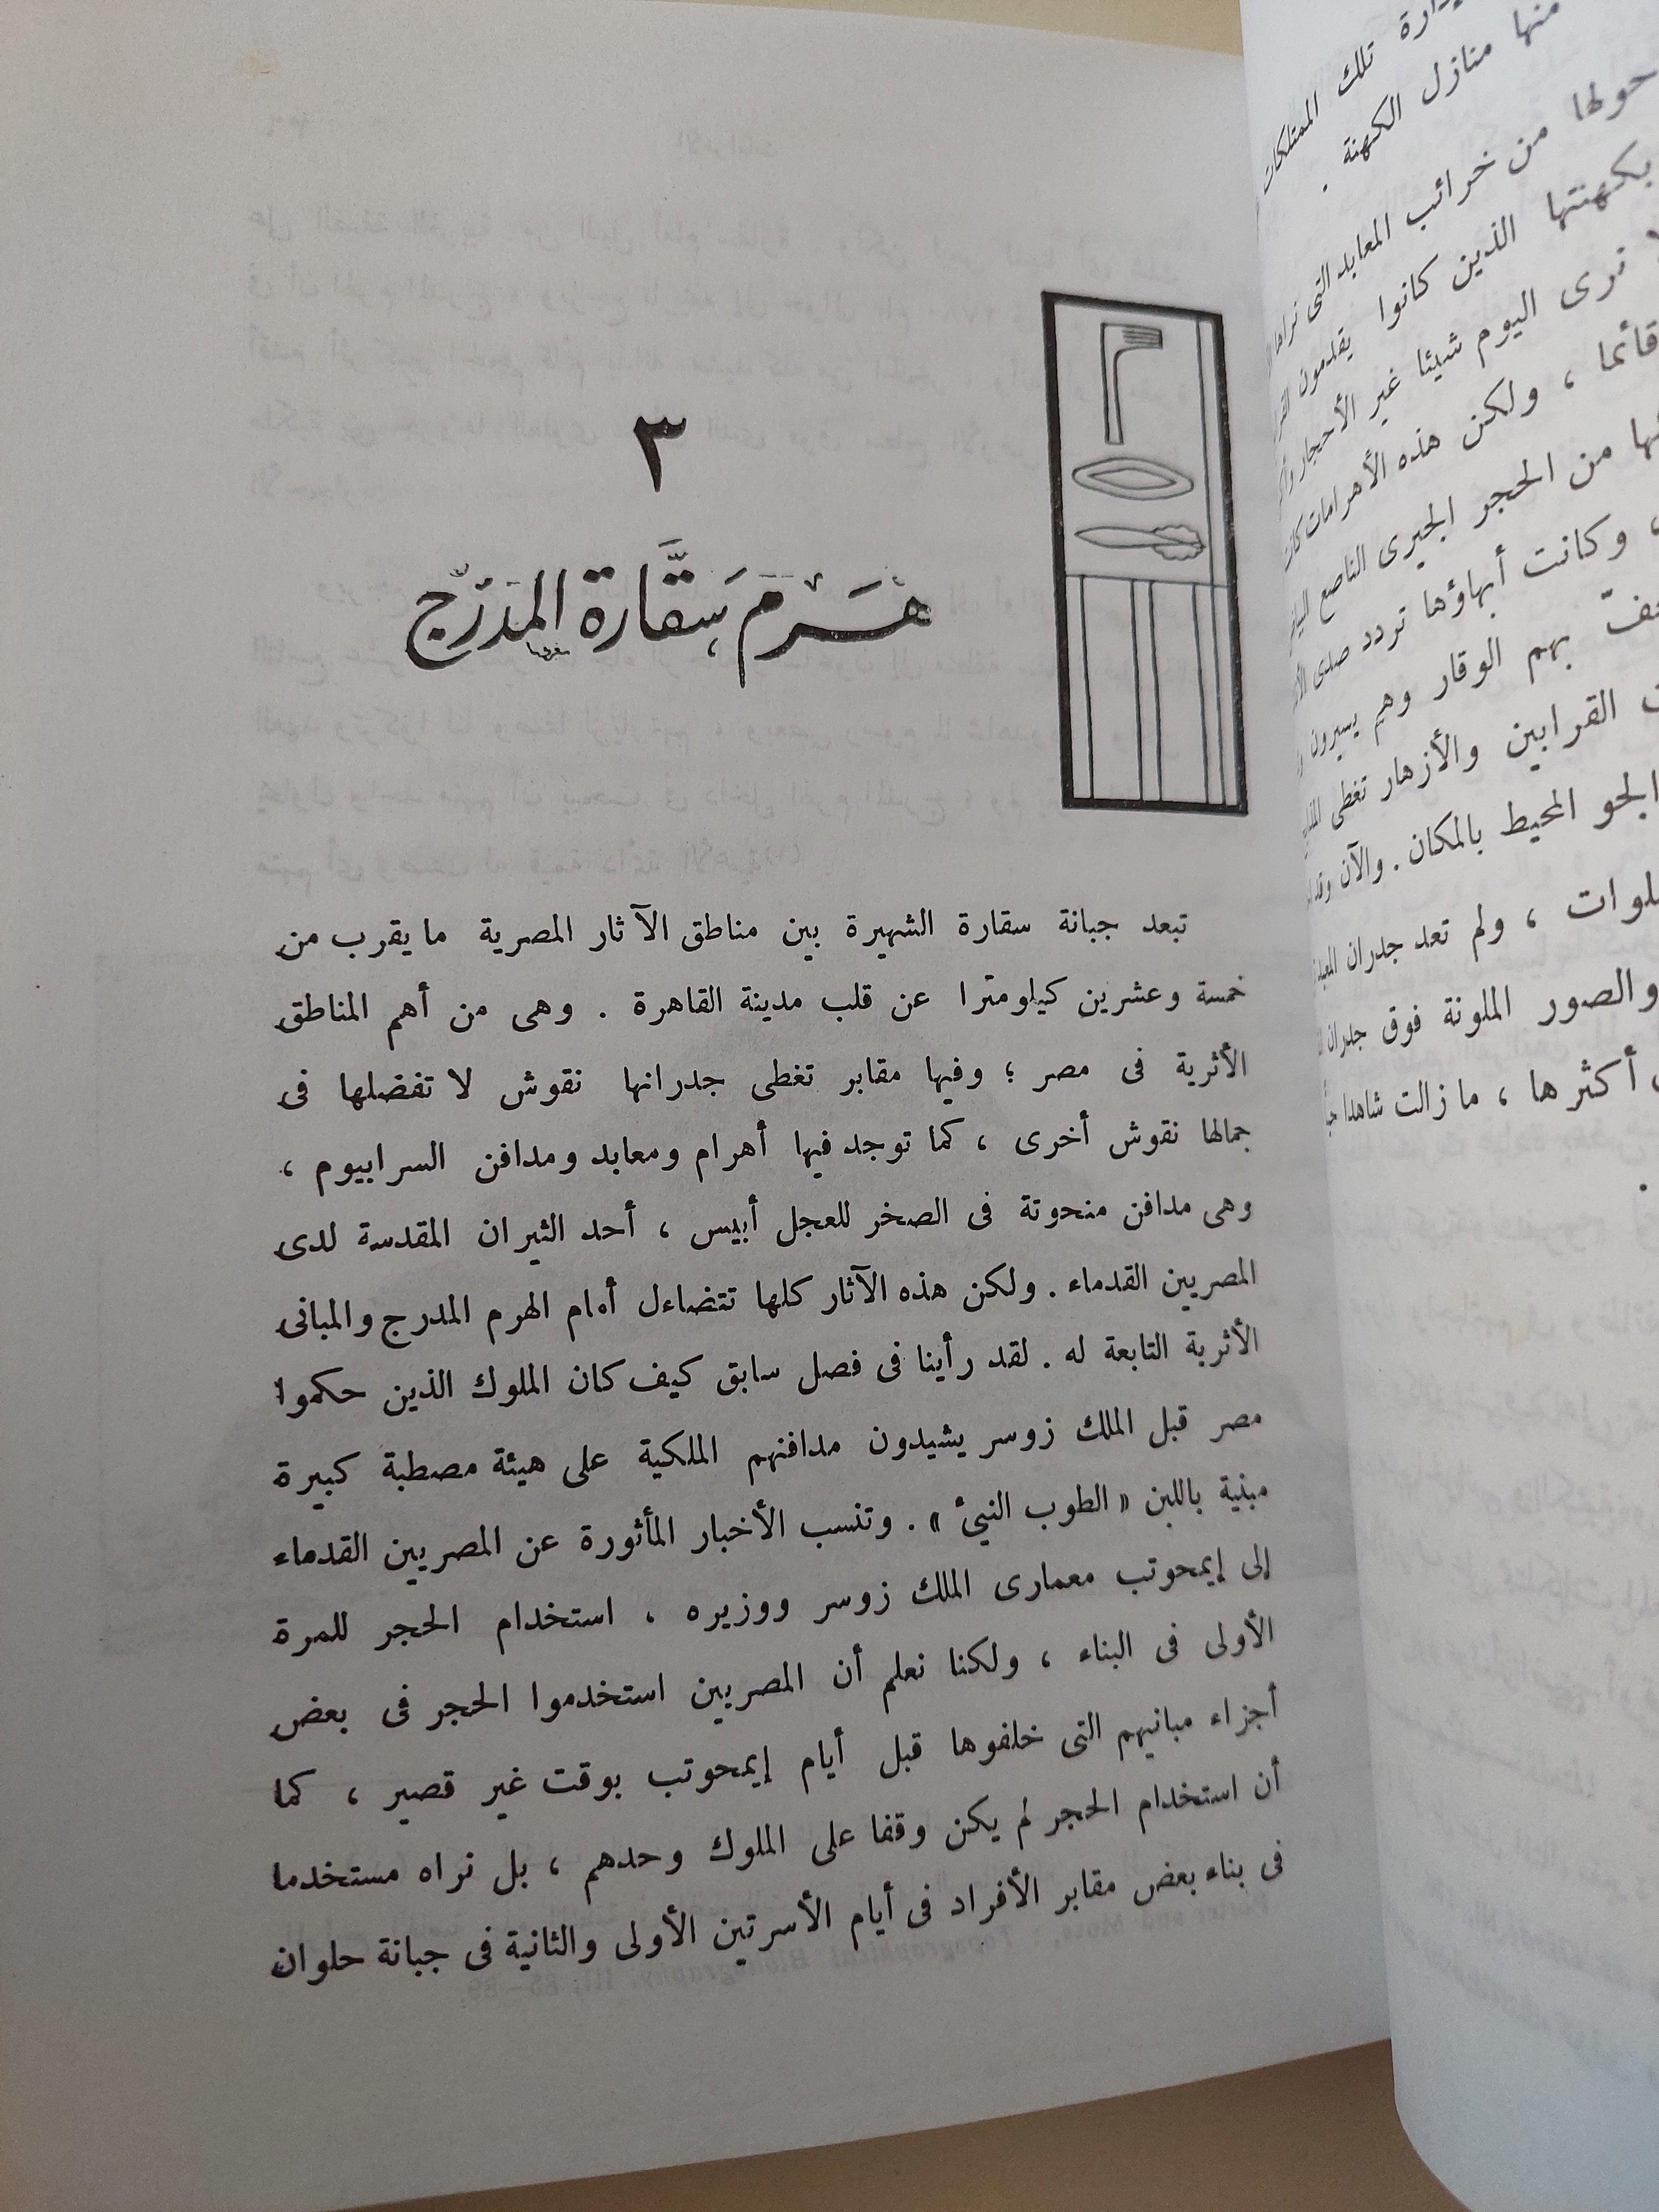 ٣
هَرَم سَقَّارة المدَرّج
تبعد جبانة سقارة الشهيرة بين مناطق الآثار المصرية ما يقرب من
خمسة وعشرين كيلومترا عن قلب مدينة القاهرة . وهى من أهم المناطق
الأثرية فى مصر ؛ وفيها مقابر تغطى جدرانها نقوش لا تفضلها فى
جمالها نقوش أخرى ، كما توجد فيها أهرام ومعابد ومدافن السرابيوم ،
وهى مدافن منحوتة فى الصخر للعجل أبيس ، أحد الثيران المقدسة لدى
المصريين القدماء . ولكن هذه الآثار كلها تتضاءل أمام الهرم المدرج والمبانى
الأثرية التابعة له . لقد رأينا فى فصل سابق كيف كان الملوك الذين حكموا
مصر قبل الملك زوسر يشيدون مدافنهم الملكية على هيئة مصطبة كبيرة
مبنية باللبن « الطوب النيئ » . وتنسب الأخبار المأثورة عن المصريين القدماء
إلى إيمحوتب معمارى الملك زوسر ووزيره ، استخدام الحجر للمرة
الأولى فى البناء ، ولكنا نعلم أن المصريين استخدموا الحجر فى بعض
أجزاء مبانيهم التى خلفوها قبل أيام إيمحوتب بوقت غير قصير ، كما
أن استخدام الحجر لم يكن وقفا على الملوك وحدهم ، بل نراه مستخدما
فى بناء بعض مقابر الأفراد فى أيام الأسرتين الأولى والثانية فى جبانة حلوان
تلك الممتلكات
منها منازل الكهنة .
حولها من خرائب المعابد التى نراها
بكهنتها الذين كانوا يقدمون
نرى اليوم شيئا غير الأحجار
قائما ، ولكن هذه الأهرامات كانت
من الحجر الجيرى الناصع
، وكانت أبهاؤها تردد صدى
بهم الوقار وهم يسيرون
القرابين والأزهار تغطى
الجو المحيط بالمكان . والآن
، ولم تعد جدران
والصور الملونة فوق جدران
أكثرها ، ما زالت شاهدا
.